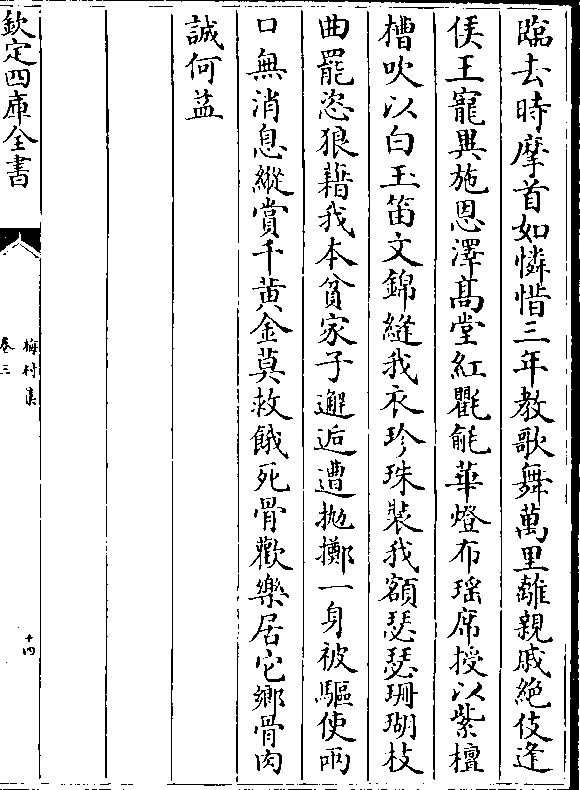 臨去時摩首如憐惜三年教歌舞萬里離親戚絶伎逢
侯王寵異施恩澤髙堂紅氍毹華燈布瑶席授以紫檀
槽吹以白玉笛文錦縫我衣珍珠裝我額瑟瑟珊瑚枝
曲罷恣狼藉我本貧家子邂逅遭抛擲一身被驅使兩
口無消息縱賞千黄金莫救餓死骨歡樂居它鄉骨肉
誠何益
欽定四庫全書
梅村集
卷三
十四